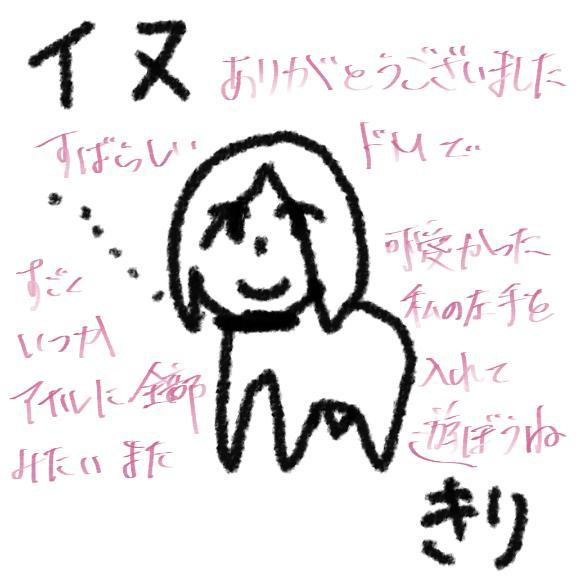 イヌ
ありがとうございました
すばらしい
ドMで
すごく
可愛かった
いつか
私の左手を
アナルに全部
入れて
みたい また
遊ぼうね
きり